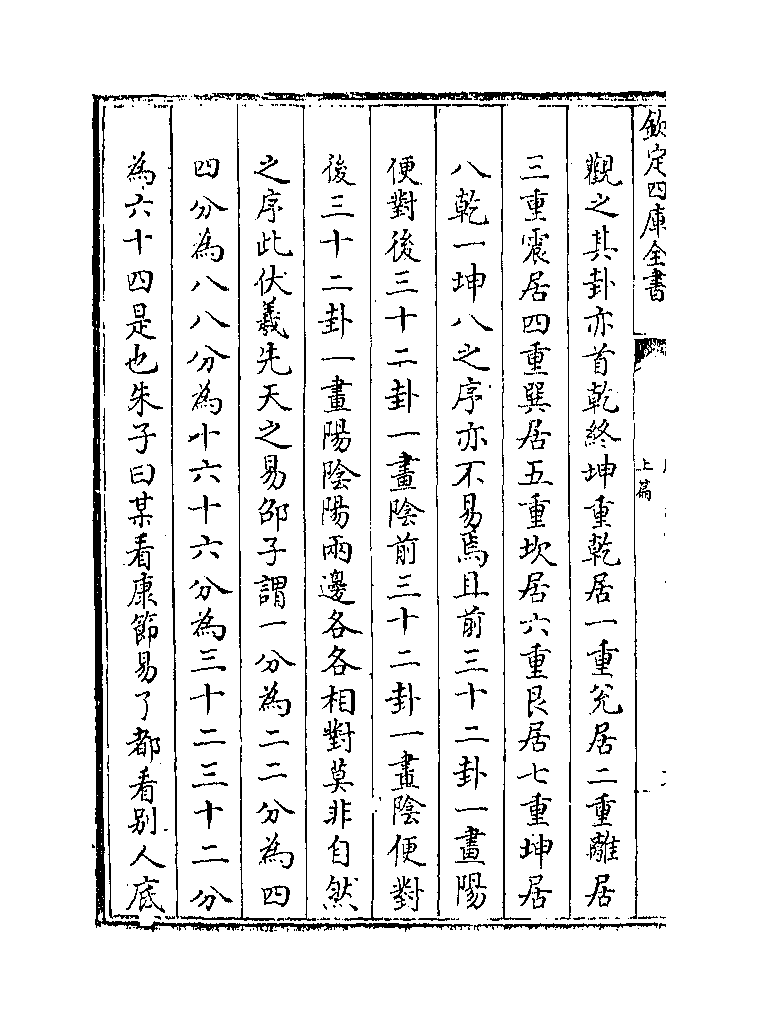 欽定四庫全書
上篇
觀之其卦亦首乾終坤重乾居一重兊居二重離居
三重震居四重巽居五重坎居六重艮居七重坤居
八乾一坤八之序亦不易焉且前三十二卦一畫陽
便對後三十二卦一畫陰前三十二卦一畫陰便對
後三十二卦一畫陽陰陽兩邊各各相對莫非自然
之序此伏羲先天之易邵子謂一分為二二分為四
四分為八八分為十六十六分為三十二三十二分
為六十四是也朱子曰某看康節易了都看别人底